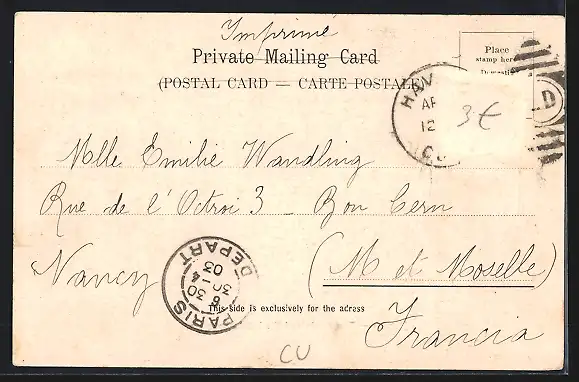 Imprimé
Private Mailing Card
(POSTAL CARD — CARTE POSTALE)
Place
stamp here
HAV
AP
12
3€
D
Mlle. Emilie Wandling
Rue de l'Octroi 3 — Bon
Nancy
(M et Moselle)
PARIS
DEPART
30
4
03
This side is exclusively for the adress
Francia
CU